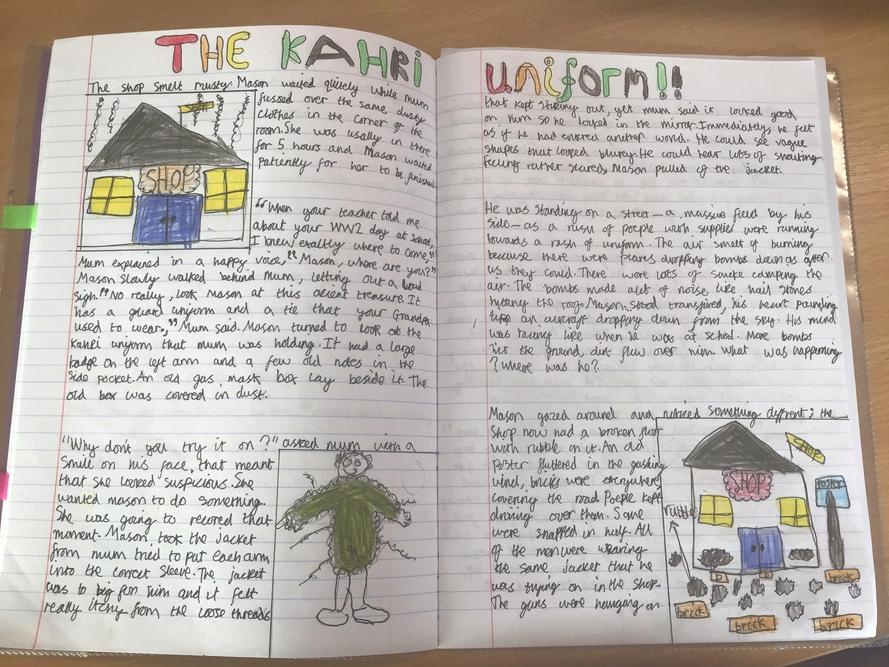 THE KAHRI
The shop smelt musty. Mason waited quitely while mum
fussed over the same dusty
clothes in the corner of the
room. She was usally in there
for 5 hours and Mason waited
patiently for her to be finished.
SHOP
"When your teacher told me
about your WW2 day at school,
I knew exaltly where to come,"
Mum explained in a happy voice, "Mason, where are you?"
Mason slowly walked behind mum, letting out a loud
sigh. "No really, look Mason at this acient treasure. It
has a guard uniform and a tie that your Grandpa
used to wear," Mum said. Mason turned to look at the
Kahri uniform that mum was holding. It had a large
badge on the left arm and a few old notes in the
side pocket. An old gas mask box lay beside it. The
old box was covered in dust.
"Why don't you try it on?" asked mum with a
smile on his face, that meant
that she looked suspicious. She
wanted mason to do something.
She was going to recored that
moment. Mason, took the jacket
from mum tried to put each arm
into the correct sleeve. The jacket
was to big for him and it felt
really itchy from the loose threads
uniform!!
that kept sticking out, yet mum said it looked good
on him so he looked in the mirror. Immediately, he felt
as if he had entered another world. He could see vague
shapes that looked blurey. He could hear lots of shouting
feeling rather scared, Mason pulled of the jacket.
He was standing on a street - a massive field by his
side - as a rush of poeple with supplies were running
towards a rash of uniform. The air smelt of burning
because there were planes dropping bombs down as often
as they could. There were lots of smoke camping the
air. The bombs made alot of noise like hail stones
hitting the roof. Mason stood transfixed, his heart pounding
like an aircraft dropping down from the sky. His mind
was racing like when he was at school. More bombs
hit the ground, dirt flew over him. What was happening
? Where was he?.
Mason gazed around and noticed something diffrent; the
shop now had a broken
with rubble on it. An old
Poster fluttered in the gushing
wind, bricks were everywhere
covering the road. Poeple kept
driving over them. Some
were snapped in half. All
of the men were wearing
the same jacket that he
was trying on in the shop.
The guns were hanging on
SHOP
SHOP
Poster
rubble
brick
brick
brick
brick